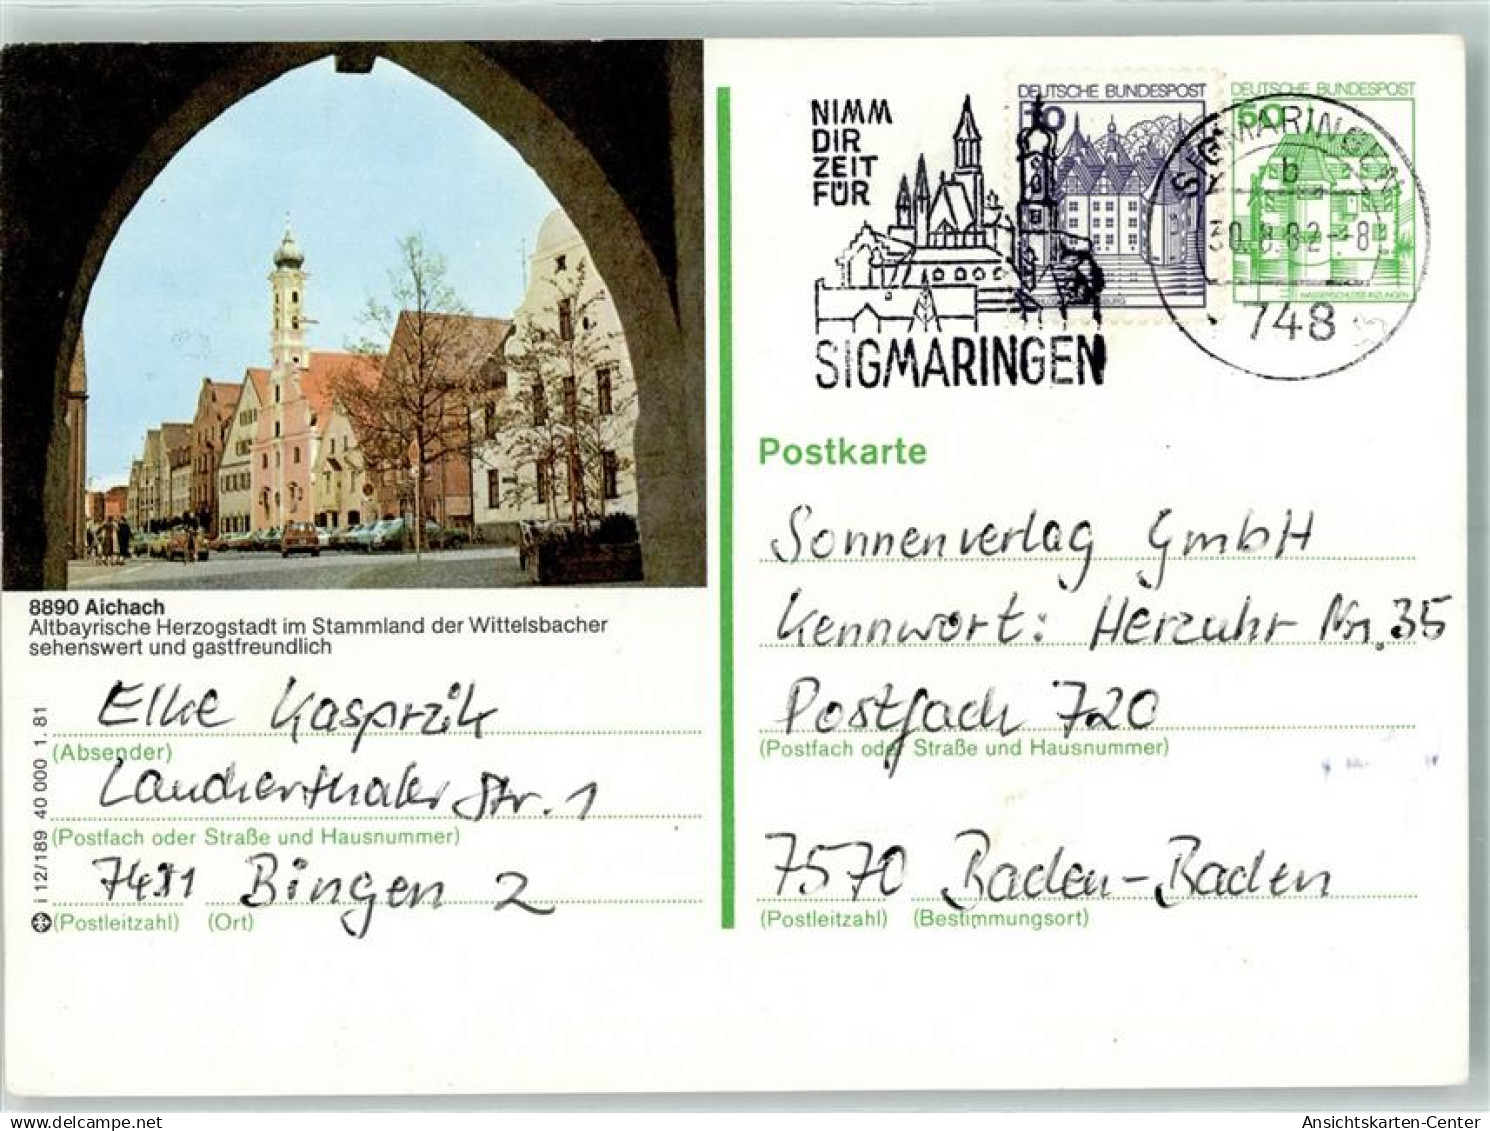 NIMM
DIR
ZEIT
FÜR
SIGMARINGEN
DEUTSCHE BUNDESPOST
10
DEUTSCHE BUNDESPOST
50
WASSERSCHLOSS INZLINGEN
SIGMARINGEN
b
30.8.82--8
748
8890 Aichach
Altbayrische Herzogstadt im Stammland der Wittelsbacher
sehenswert und gastfreundlich
Elke Kasprzik
(Absender)
Lauchertthaler Str. 1
(Postfach oder Straße und Hausnummer)
7481 Bingen 2
(Postleitzahl) (Ort)
i 12/189 40 000 1. 81
Postkarte
Sonnenverlag GmbH
Kennwort: Herzuhr Nr. 35
Postfach 720
(Postfach oder Straße und Hausnummer)
7570 Baden-Baden
(Postleitzahl) (Bestimmungsort)
www.delcampe.net
Ansichtskarten-Center